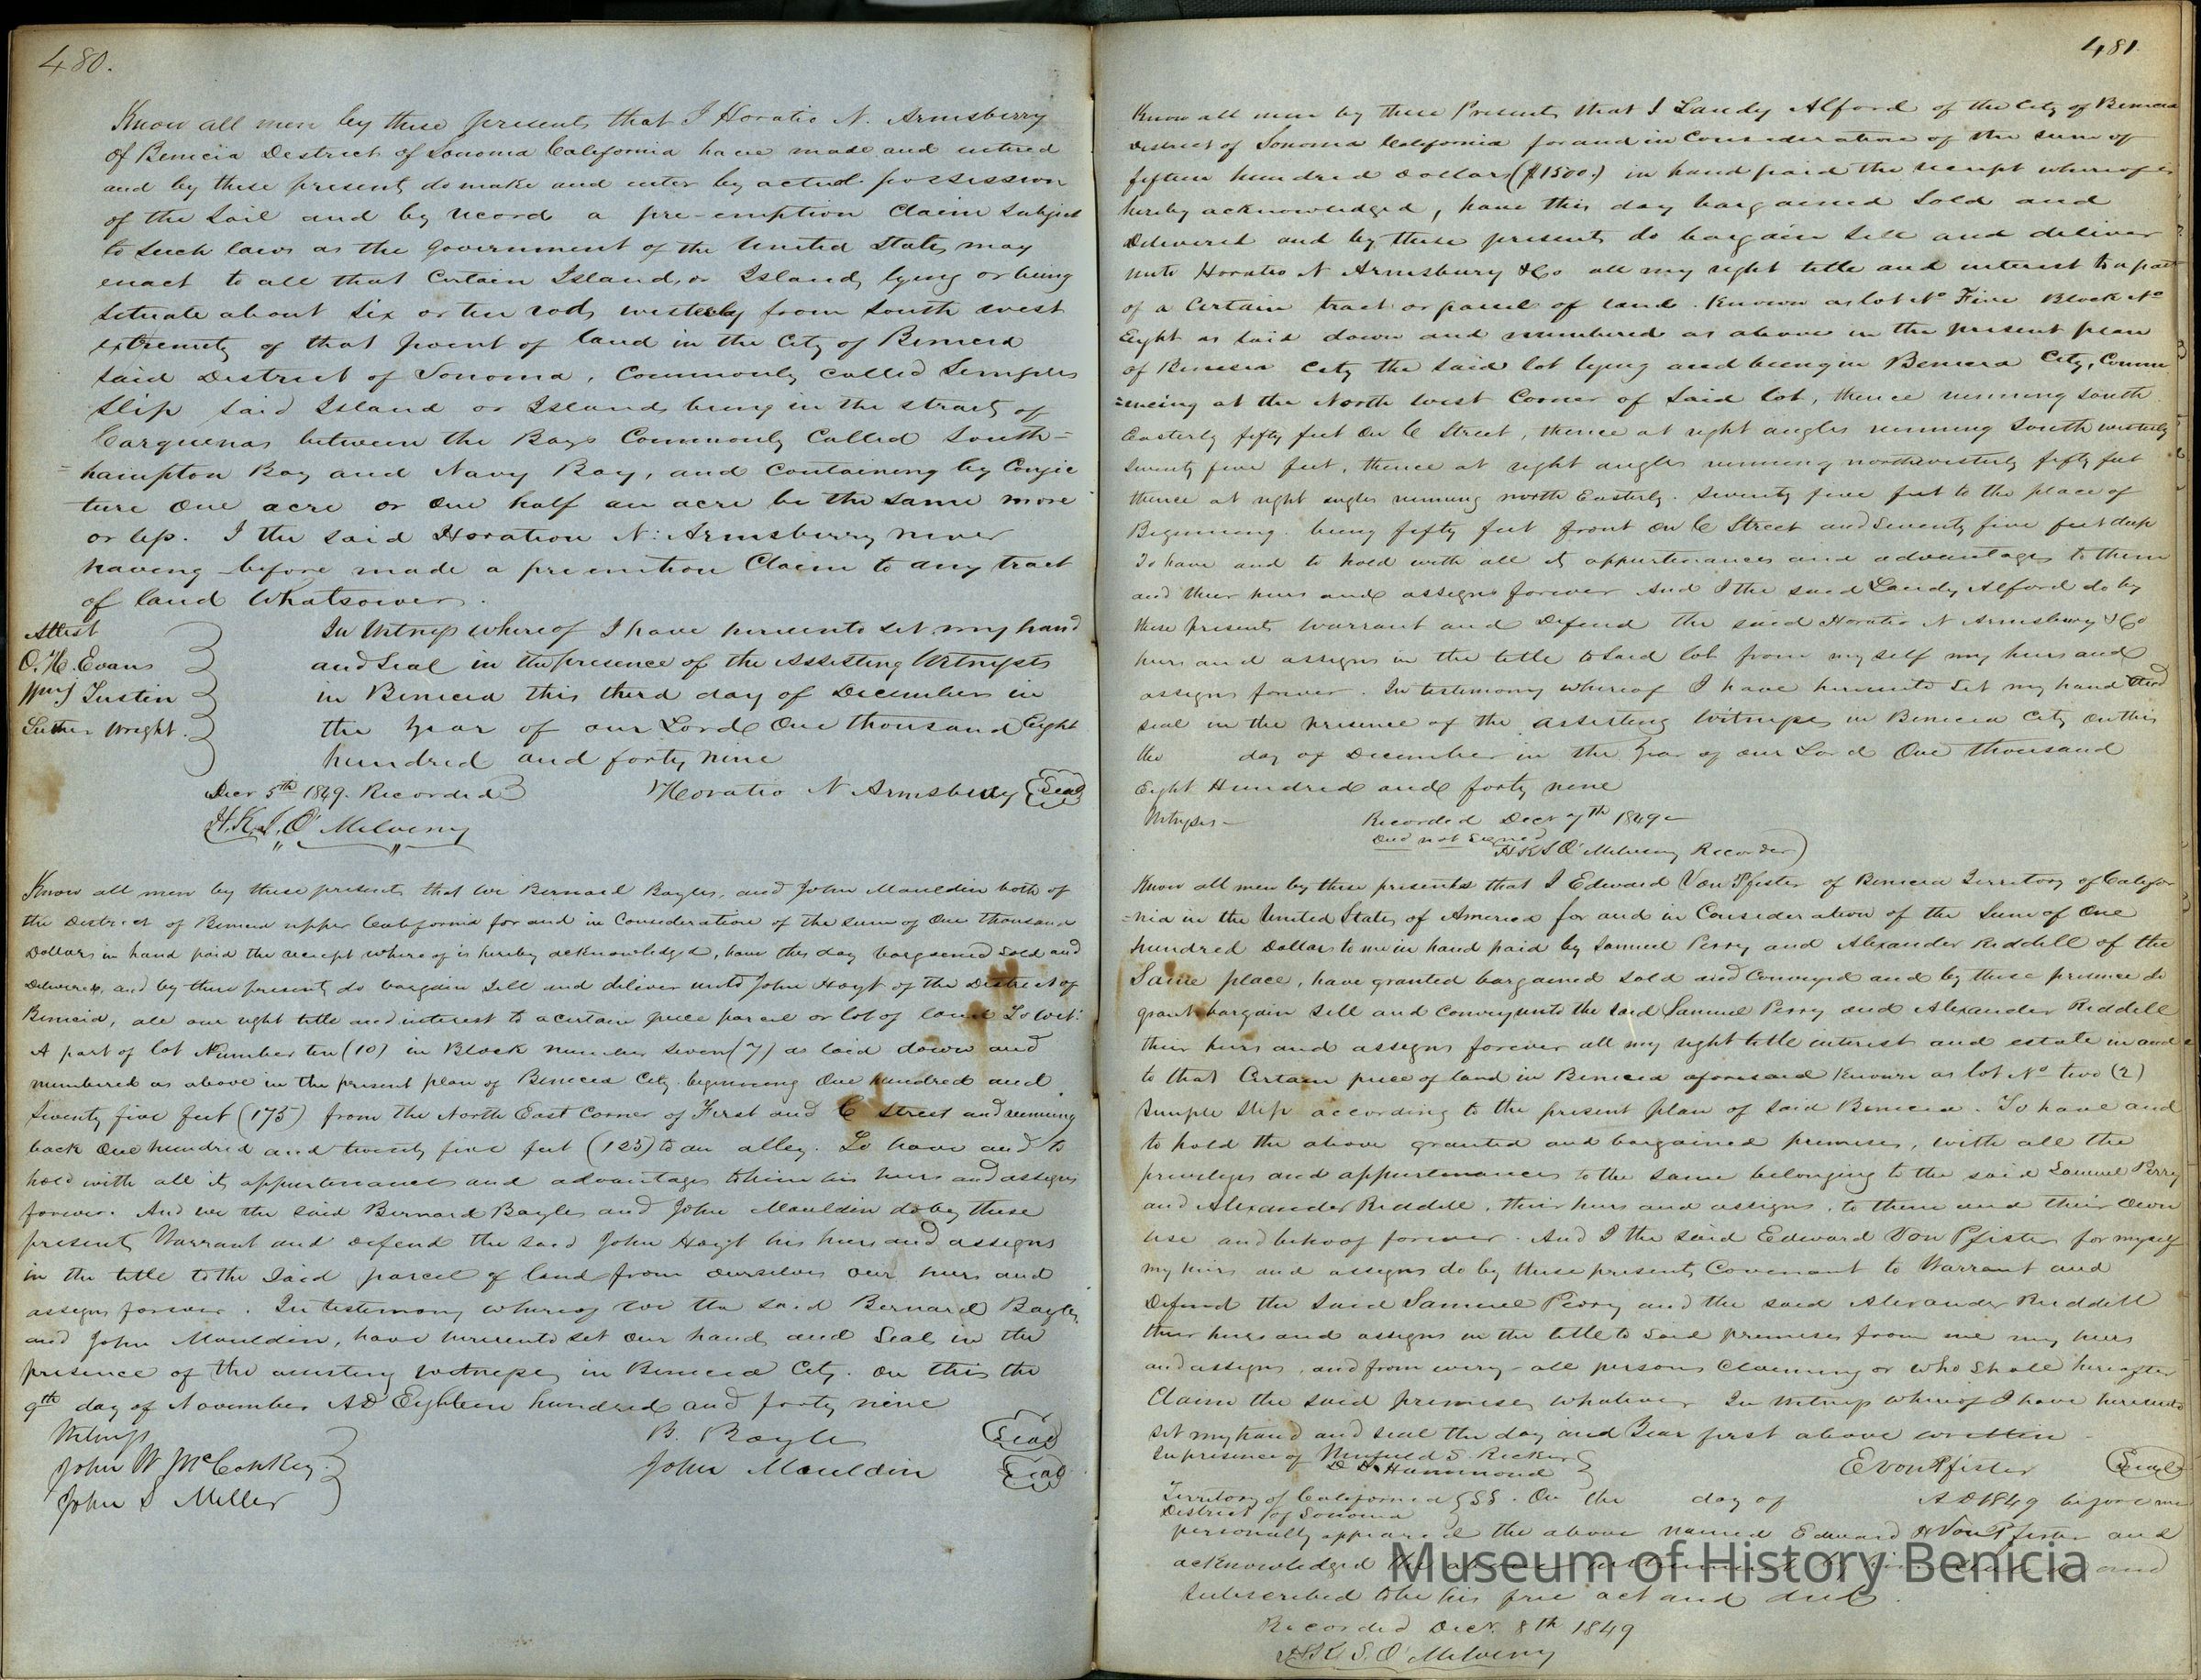 480.
Know all men by these presents that I Horatio N. Armsberry
of Benicia District of Sonoma California have made and entered
and by these presents do make and enter by actual possession
of the soil and by record a pre-emption Claim subject
to such laws as the government of the United States may
enact to all that Certain Island, or Islands lying or being
situate about six or ten rods westerly from South west
extremity of that point of land in the City of Benicia
said District of Sonoma, Commonly called Semples
Slip said Island or Islands being in the straits of
Carquenas between the Bays Commonly Called South=
=hampton Bay and Navy Bay, and Containing by Conjec
ture One acre or One half an acre be the same more
or less. I the said Horation N: Armsberry never
having before made a premention Claim to any tract
of land Whatsoever.
Attest
O. H. Evans
Wm J Tustin
Luther Wright.
In Witness whereof I have hereunto set my hand
and Seal in the presence of the Assisting Witnesses
in Benicia this third day of December in
the year of our Lord One thousand Eight
hundred and forty nine
Decr 5th 1849. Recorded
Horatio N Armsbury Seal
H.K.S. O'Melveny
Know all men by these presents that we Bernard Bayles, and John Mauldin both of
the District of Benicia upper California for and in Consideration of the sum of One thousand
Dollars in hand paid the receipt whereof is hereby acknowledged, have this day bargained sold and
Delivered, and by these presents do bargain sell and deliver unto John Hoyt of the District of
Benicia, all our right title and interest to a certain piece parcel or lot of land To wit:
A part of lot Number ten (10) in Block number seven (7) as laid down and
numbered as above in the present plan of Benicia City. beginning One hundred and
seventy five feet (175) from the North East Corner of First and C Street and running
back One hundred and twenty five feet (125) to an alley. To have and to
hold with all its appurtenances and advantages to him his heirs and assigns
forever. And we the said Bernard Bayles and John Mauldin do by these
presents Warrant and defend the said John Hoyt his heirs and assigns
in the title to the said parcel of land from ourselves our heirs and
assigns forever. In testimony whereof we the said Bernard Bayles
and John Mauldin, have hereunto set our hands and Seals in the
presence of the assisting witnesses in Benicia City. on this the
9th day of November AD Eighteen hundred and forty nine
Witness
B. Bayle Seal
John W McConkey.
John Mauldin Seal
John S Miller
481.
Know all men by these Presents that I Landy Alford of the City of Benicia
District of Sonoma California for and in Consideration of the sum of
fifteen hundred Dollars ($1500.) in hand paid the receipt whereof is
hereby acknowledged, have this day bargained sold and
Delivered and by these presents do bargain sell and deliver
unto Horatio N Armsbury & Co all my right title and interest to a part
of a Certain tract or parcel of land. Known as lot No Five Block No
Eight as laid down and numbered as above in the present plan
of Benicia City the said lot lying and being in Benicia City, Comm
=encing at the North West Corner of said lot, thence running South
Easterly fifty feet on C Street, thence at right angles running South westerly
seventy five feet, thence at right angles running northwesterly fifty feet
thence at right angles running north Easterly. seventy five feet to the place of
Beginning. being fifty feet front on C Street and seventy five feet deep
To have and to hold with all its appurtenances and advantages to them
and their heirs and assigns forever And I the said Landy Alford do by
these presents warrant and Defend the said Horatio N Armsbury & Co
heirs and assigns in the title to said lot from my self my heirs and
assigns forever. In testimony whereof I have hereunto set my hand and
seal in the presence of the assisting Witnesses in Benicia City on this
the day of December in the Year of our Lord One thousand
Eight Hundred and forty nine
Witnesses
Recorded Decr 7th 1849
Deed not signed
H K S O'Melveny Recorder
Know all men by these presents that I Edward Von Pfister of Benicia Territory of Califor
=nia in the United States of America for and in Consideration of the Sum of One
hundred Dollars to me in hand paid by Samuel Perry and Alexander Riddell of the
Same place, have granted bargained sold and Conveyed and by these presence do
grant bargain sell and Convey unto the said Samuel Perry and Alexander Riddell
their heirs and assigns forever all my right title interest and estate in and
to that Certain piece of land in Benicia aforesaid Known as lot No two (2)
Semple Slip according to the present plan of said Benicia. To have and
to hold the above granted and bargained premises, with all the
privileges and appurtenances to the same belonging to the said Samuel Perry
and Alexander Riddell, their heirs and assigns, to them and their own
use and behoof forever. And I the said Edward Von Pfister for myself
my heirs and assigns do by these presents Covenant to Warrant and
Defend the said Samuel Perry and the said Alexander Riddell
their heirs and assigns in the title to said premises from me my heirs
and assigns, and from every all persons Claiming or who shall hereafter
Claim the said premises whatever In Witness whereof I have hereunto
set my hand and seal the day and Year first above written
In presence of S. Ricker
D. D. Hammond
E Von Pfister Seal
Territory of California SS. On the day of AD 1849 before me
District of Sonoma
personally appeared the above named Edward H Von Pfister and
acknowledged the above
subscribed to be his free act and deed.
Recorded Decr. 8th 1849
H K S. O'Melveny
Museum of History Benicia